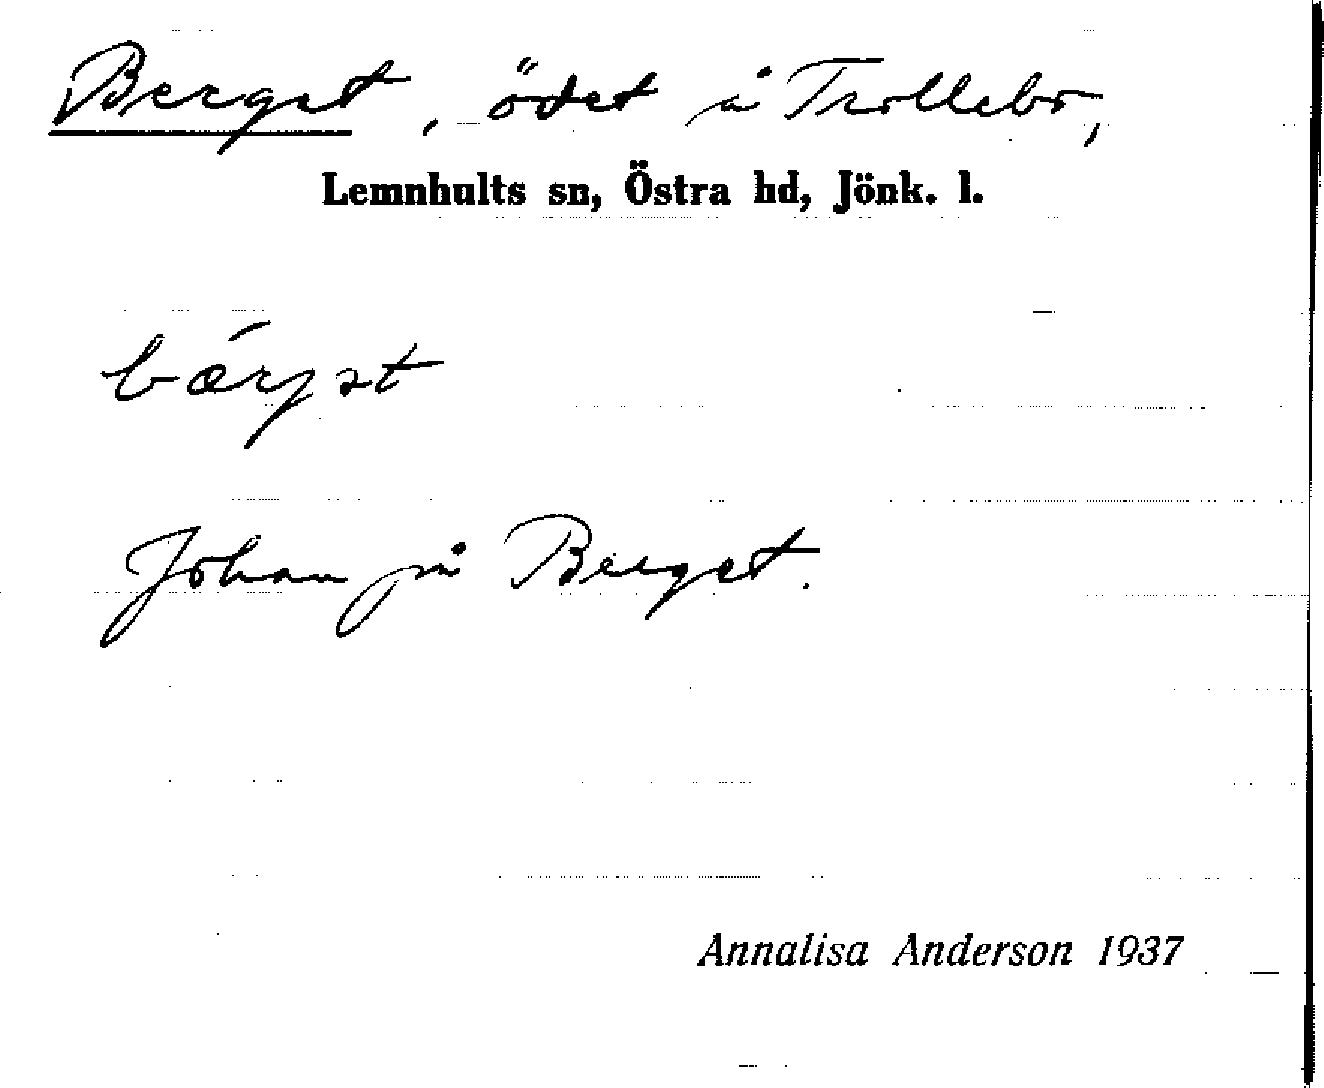 Berget, ödet å Trollebo,
Lemnhults sn, Östra hd, Jönk. l.
bǽrjət
Johan på Berget.
Annalisa Anderson 1937